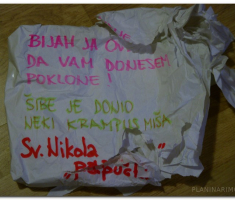 BIJAH JA OV
DA VAM DONESEM
POKLONE!
ŠIBE JE DONIO
NEKI KRAMPUS MIŠA
Sv. Nikola